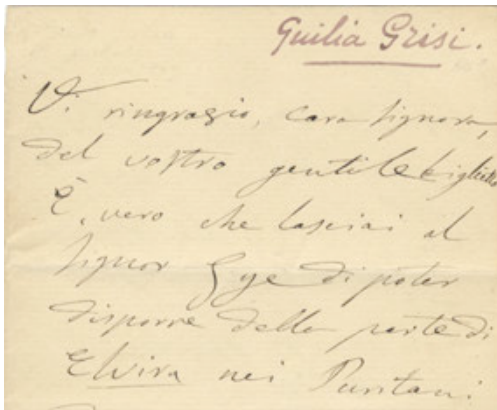 Guilia Grisi.
Vi ringrazio, cara Signora,
del vostro gentile biglietto
È vero che lasciai al
Signor Gye di poter
disporre della parte di
Elvira nei Puritani